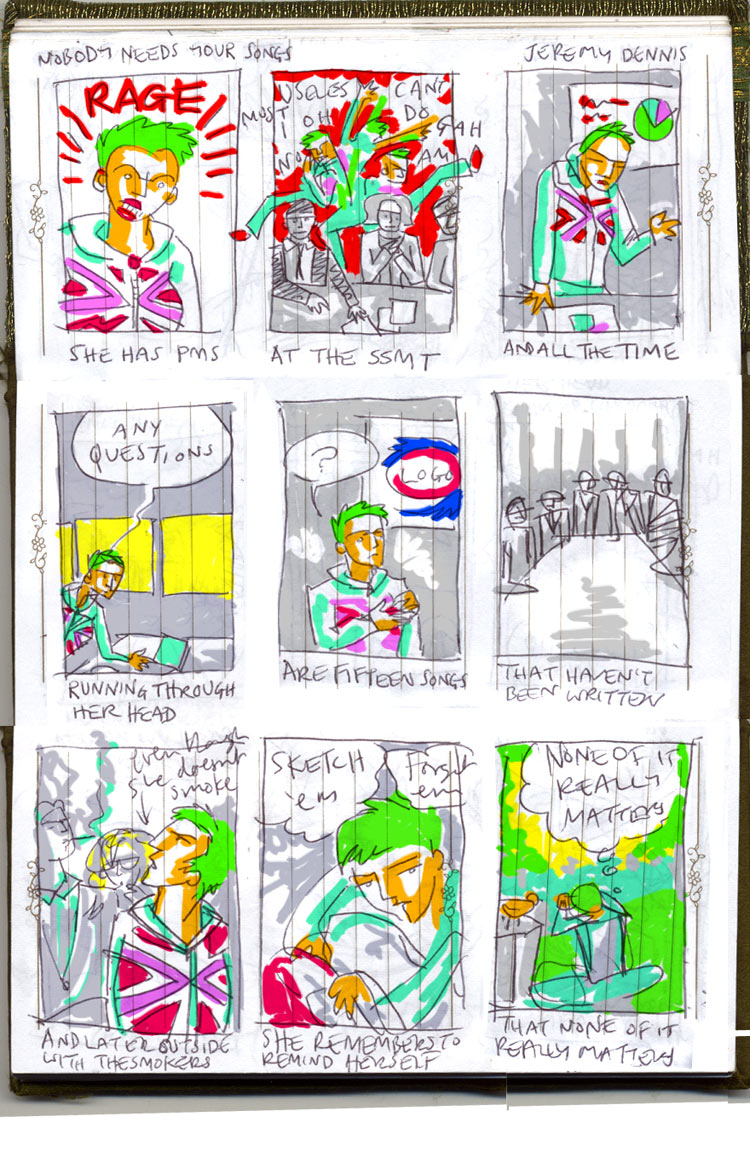 NOBODY NEEDS YOUR SONGS
JEREMY DENNIS
RAGE
SHE HAS PMS
USELES CANT
MUST OH DO GAH
T
I
NO AM
AT THE SSMT
AND ALL THE TIME
ANY
QUESTIONS
RUNNING THROUGH
HER HEAD
?
LOGO
ARE FIFTEEN SONGS
THAT HAVEN'T
BEEN WRITTEN
even though
she doesn't
smoke
AND LATER OUTSIDE
WITH THE SMOKERS
SKETCH
'em
Forget
'em
SHE REMEMBERS TO
REMIND HERSELF
NONE OF IT
REALLY
MATTERS
THAT NONE OF IT
REALLY MATTERS